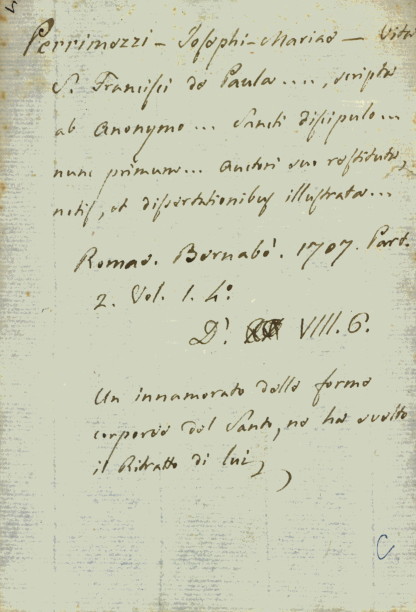 Perrimezzi - Josephi-Mariae - Vita
S. Francisci de Paula...., scripta
ab Anonymo... Sancti discipulo...
nunc primum... Auctori suo restituta,
notis, et dissertationibus illustrata...
Romae. Bernabò. 1707. Part.
2. Vol. 1. 4.º
D.' VIII. 6.
Un innamorato delle forme
corporee del Santo, ne ha svelto
il Ritratto di lui
C